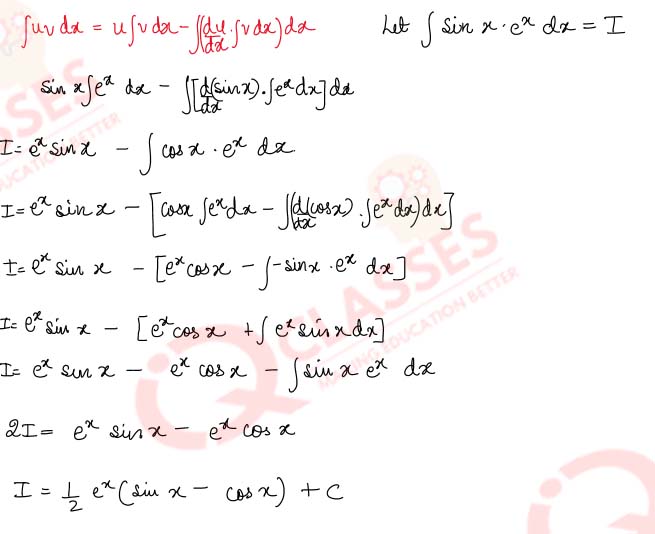 ∫uv dx = u∫v dx − ∫(du/dx · ∫v dx) dx   Let ∫ sin x · e^x dx = I
sin x ∫e^x dx − ∫[d/dx(sin x) · ∫e^x dx] dx
I = e^x sin x − ∫ cos x · e^x dx
I = e^x sin x − [cos x ∫e^x dx − ∫(d/dx(cos x) · ∫e^x dx) dx]
I = e^x sin x − [e^x cos x − ∫ −sin x · e^x dx]
I = e^x sin x − [e^x cos x + ∫ e^x sin x dx]
I = e^x sin x − e^x cos x − ∫ sin x e^x dx
2I = e^x sin x − e^x cos x
I = 1/2 e^x (sin x − cos x) + C
CLASSES
MAKING EDUCATION BETTER